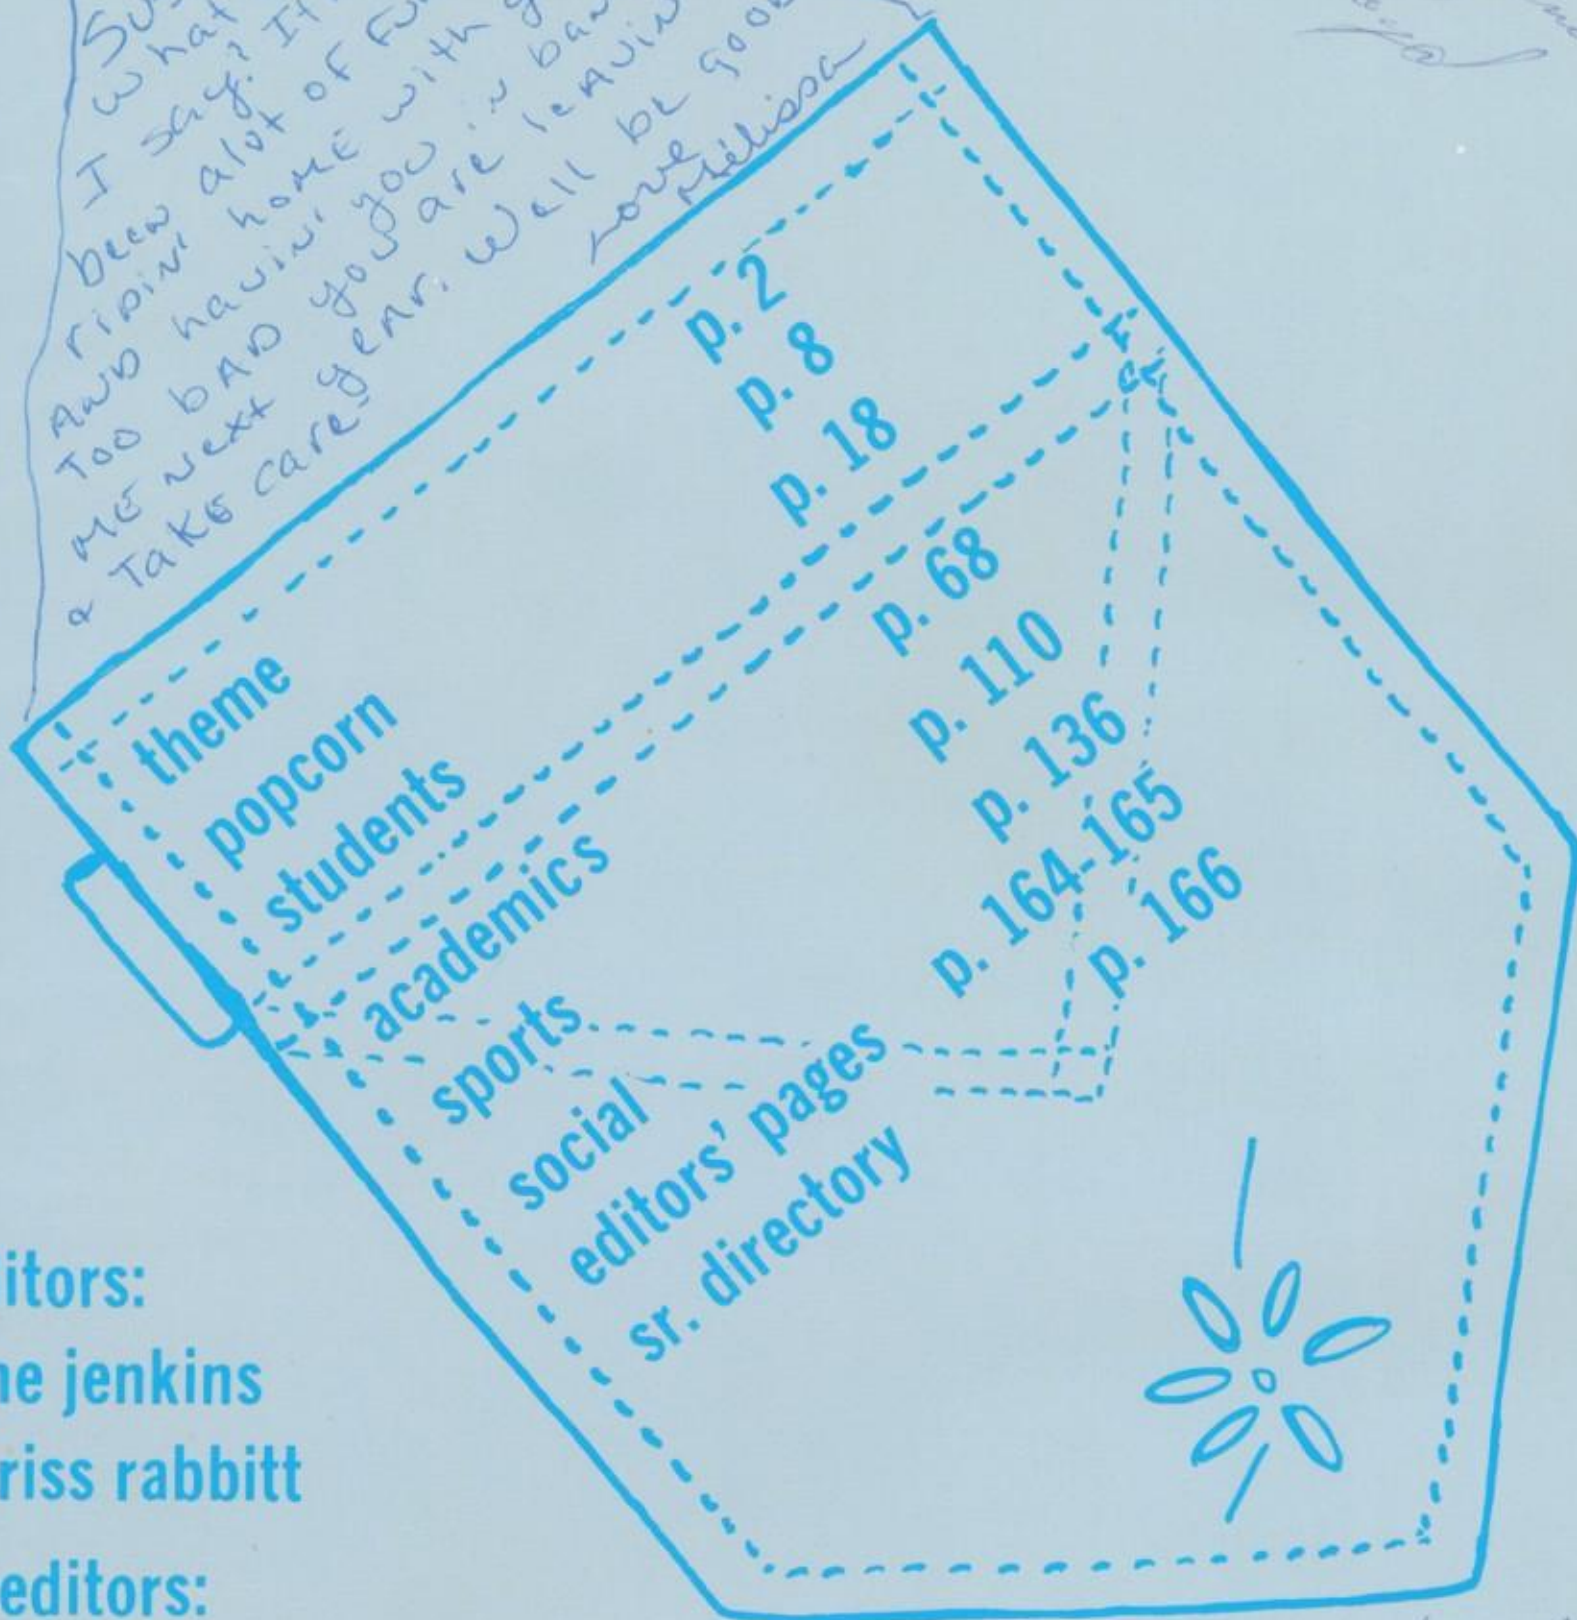 what
I say? It
been alot of fu
ridin' home with y
AND havin' you in ban
TOO bAD you are leavin
ME next year. Well be good
& Take care,
Love
Melissa
theme p. 2
popcorn p. 8
students p. 18
academics p. 68
sports p. 110
social p. 136
editors' pages p. 164-165
sr. directory p. 166
itors:
ne jenkins
riss rabbitt
editors: